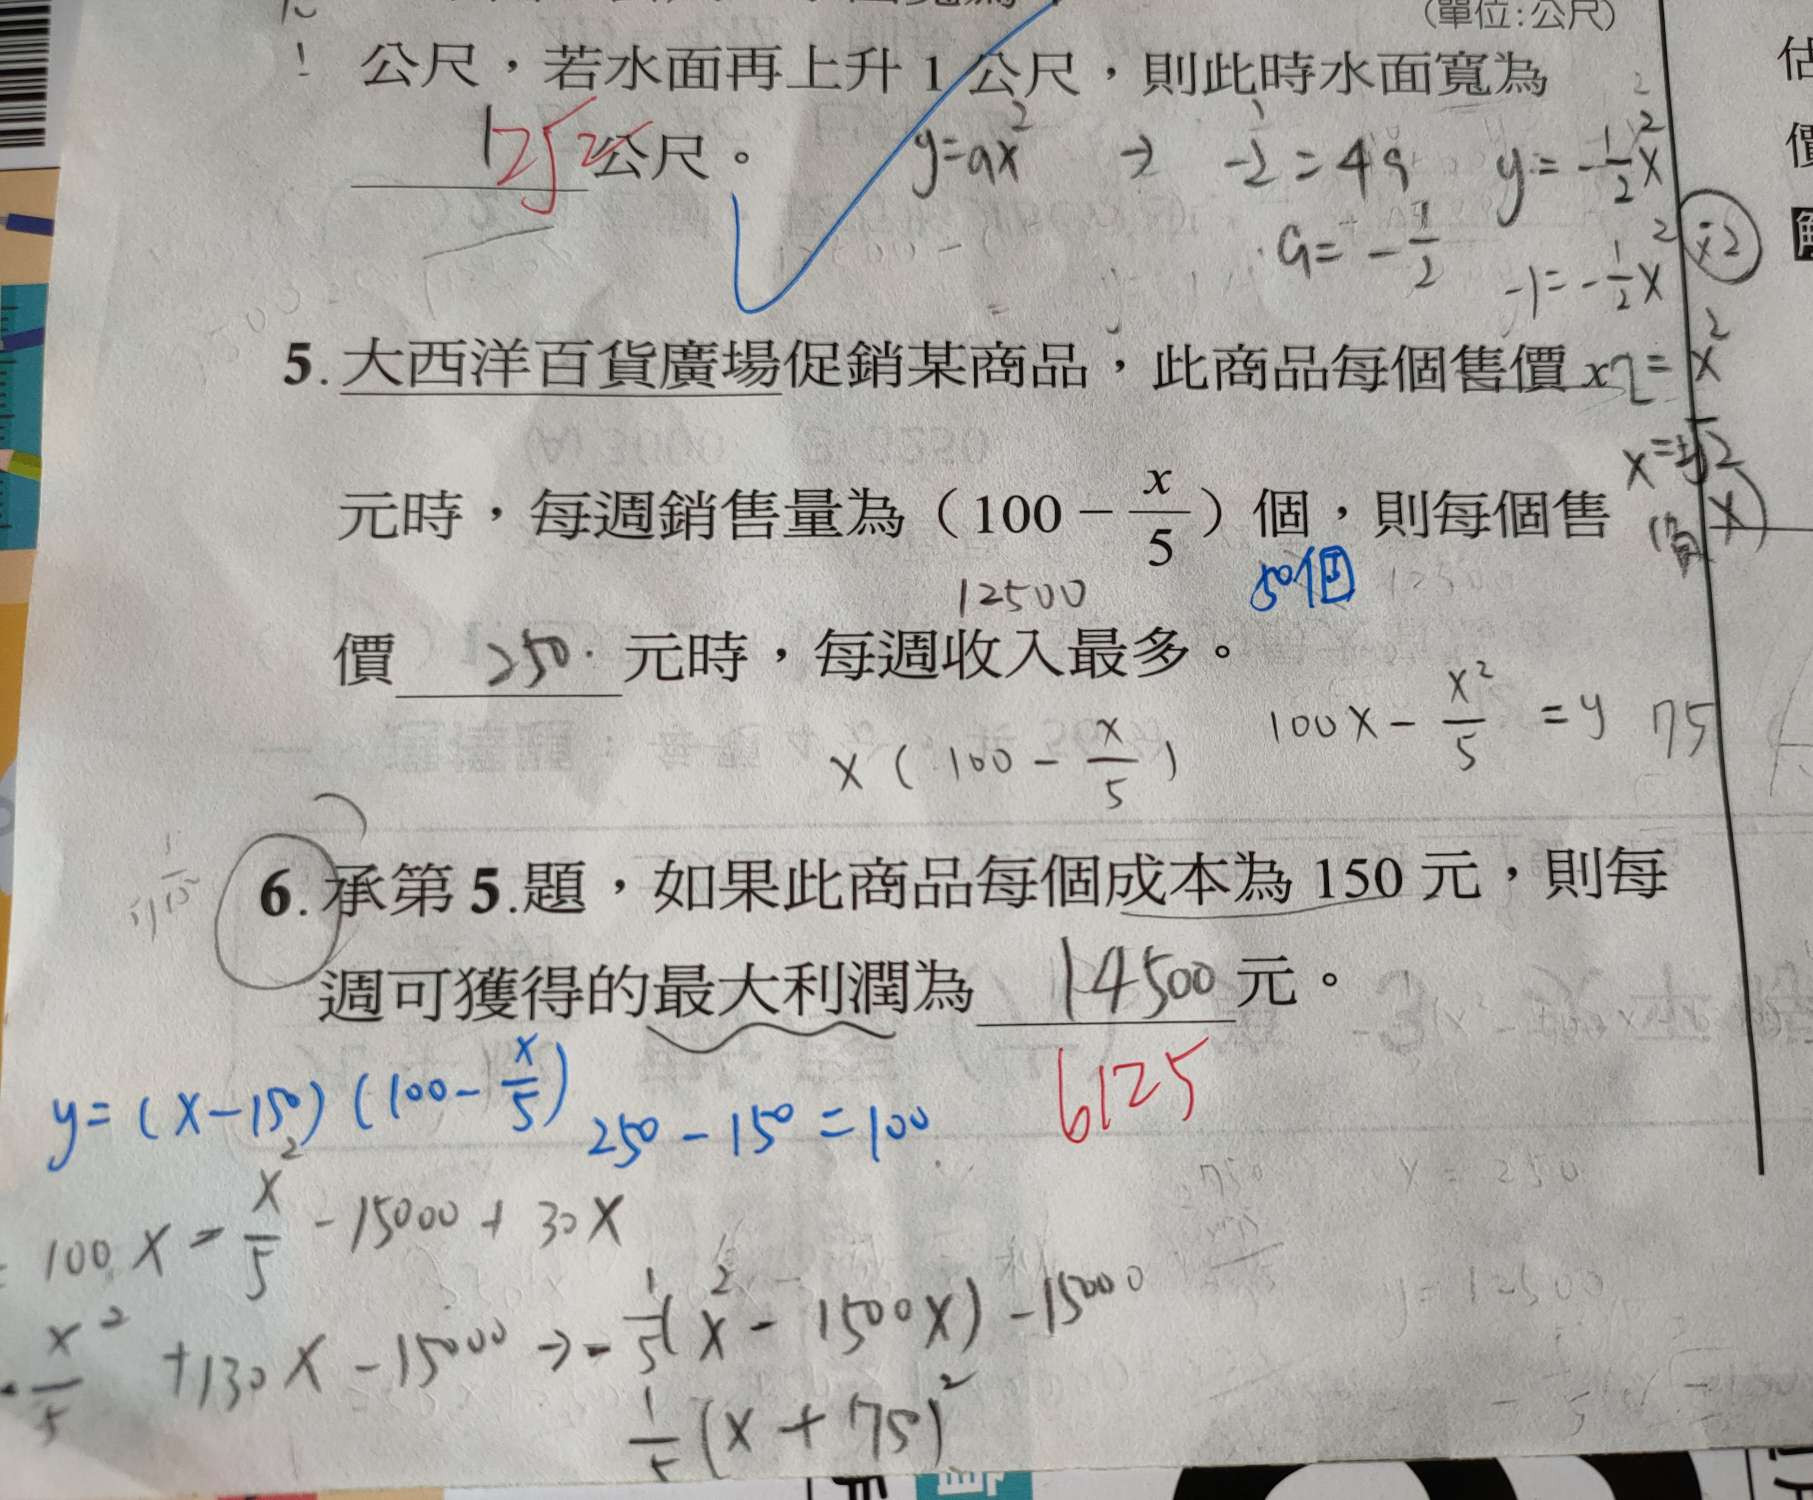 (單位:公尺)
公尺，若水面再上升 1 公尺，則此時水面寬為
公尺。
y=ax²
→
= 4a
a= -1/2
y= -1/2 x²
-1= -1/2 x²
×2
2= x²
x=±√2
(負
5.大西洋百貨廣場促銷某商品，此商品每個售價 x
元時，每週銷售量為（100－x/5）個，則每個售
12500
50個
價 250 元時，每週收入最多。
x ( 100 - x/5 )
100x - x²/5 = y
75
6.承第 5.題，如果此商品每個成本為 150 元，則每
週可獲得的最大利潤為 14500 元。
6125
y= (x-150) (100- x/5)
250 - 150 = 100
100x - x²/5 - 15000 + 30x
- x²/5 +130x -15000 → - 1/5(x² - 1500x) -15000
1/5 (x + 75)²
估
價
解